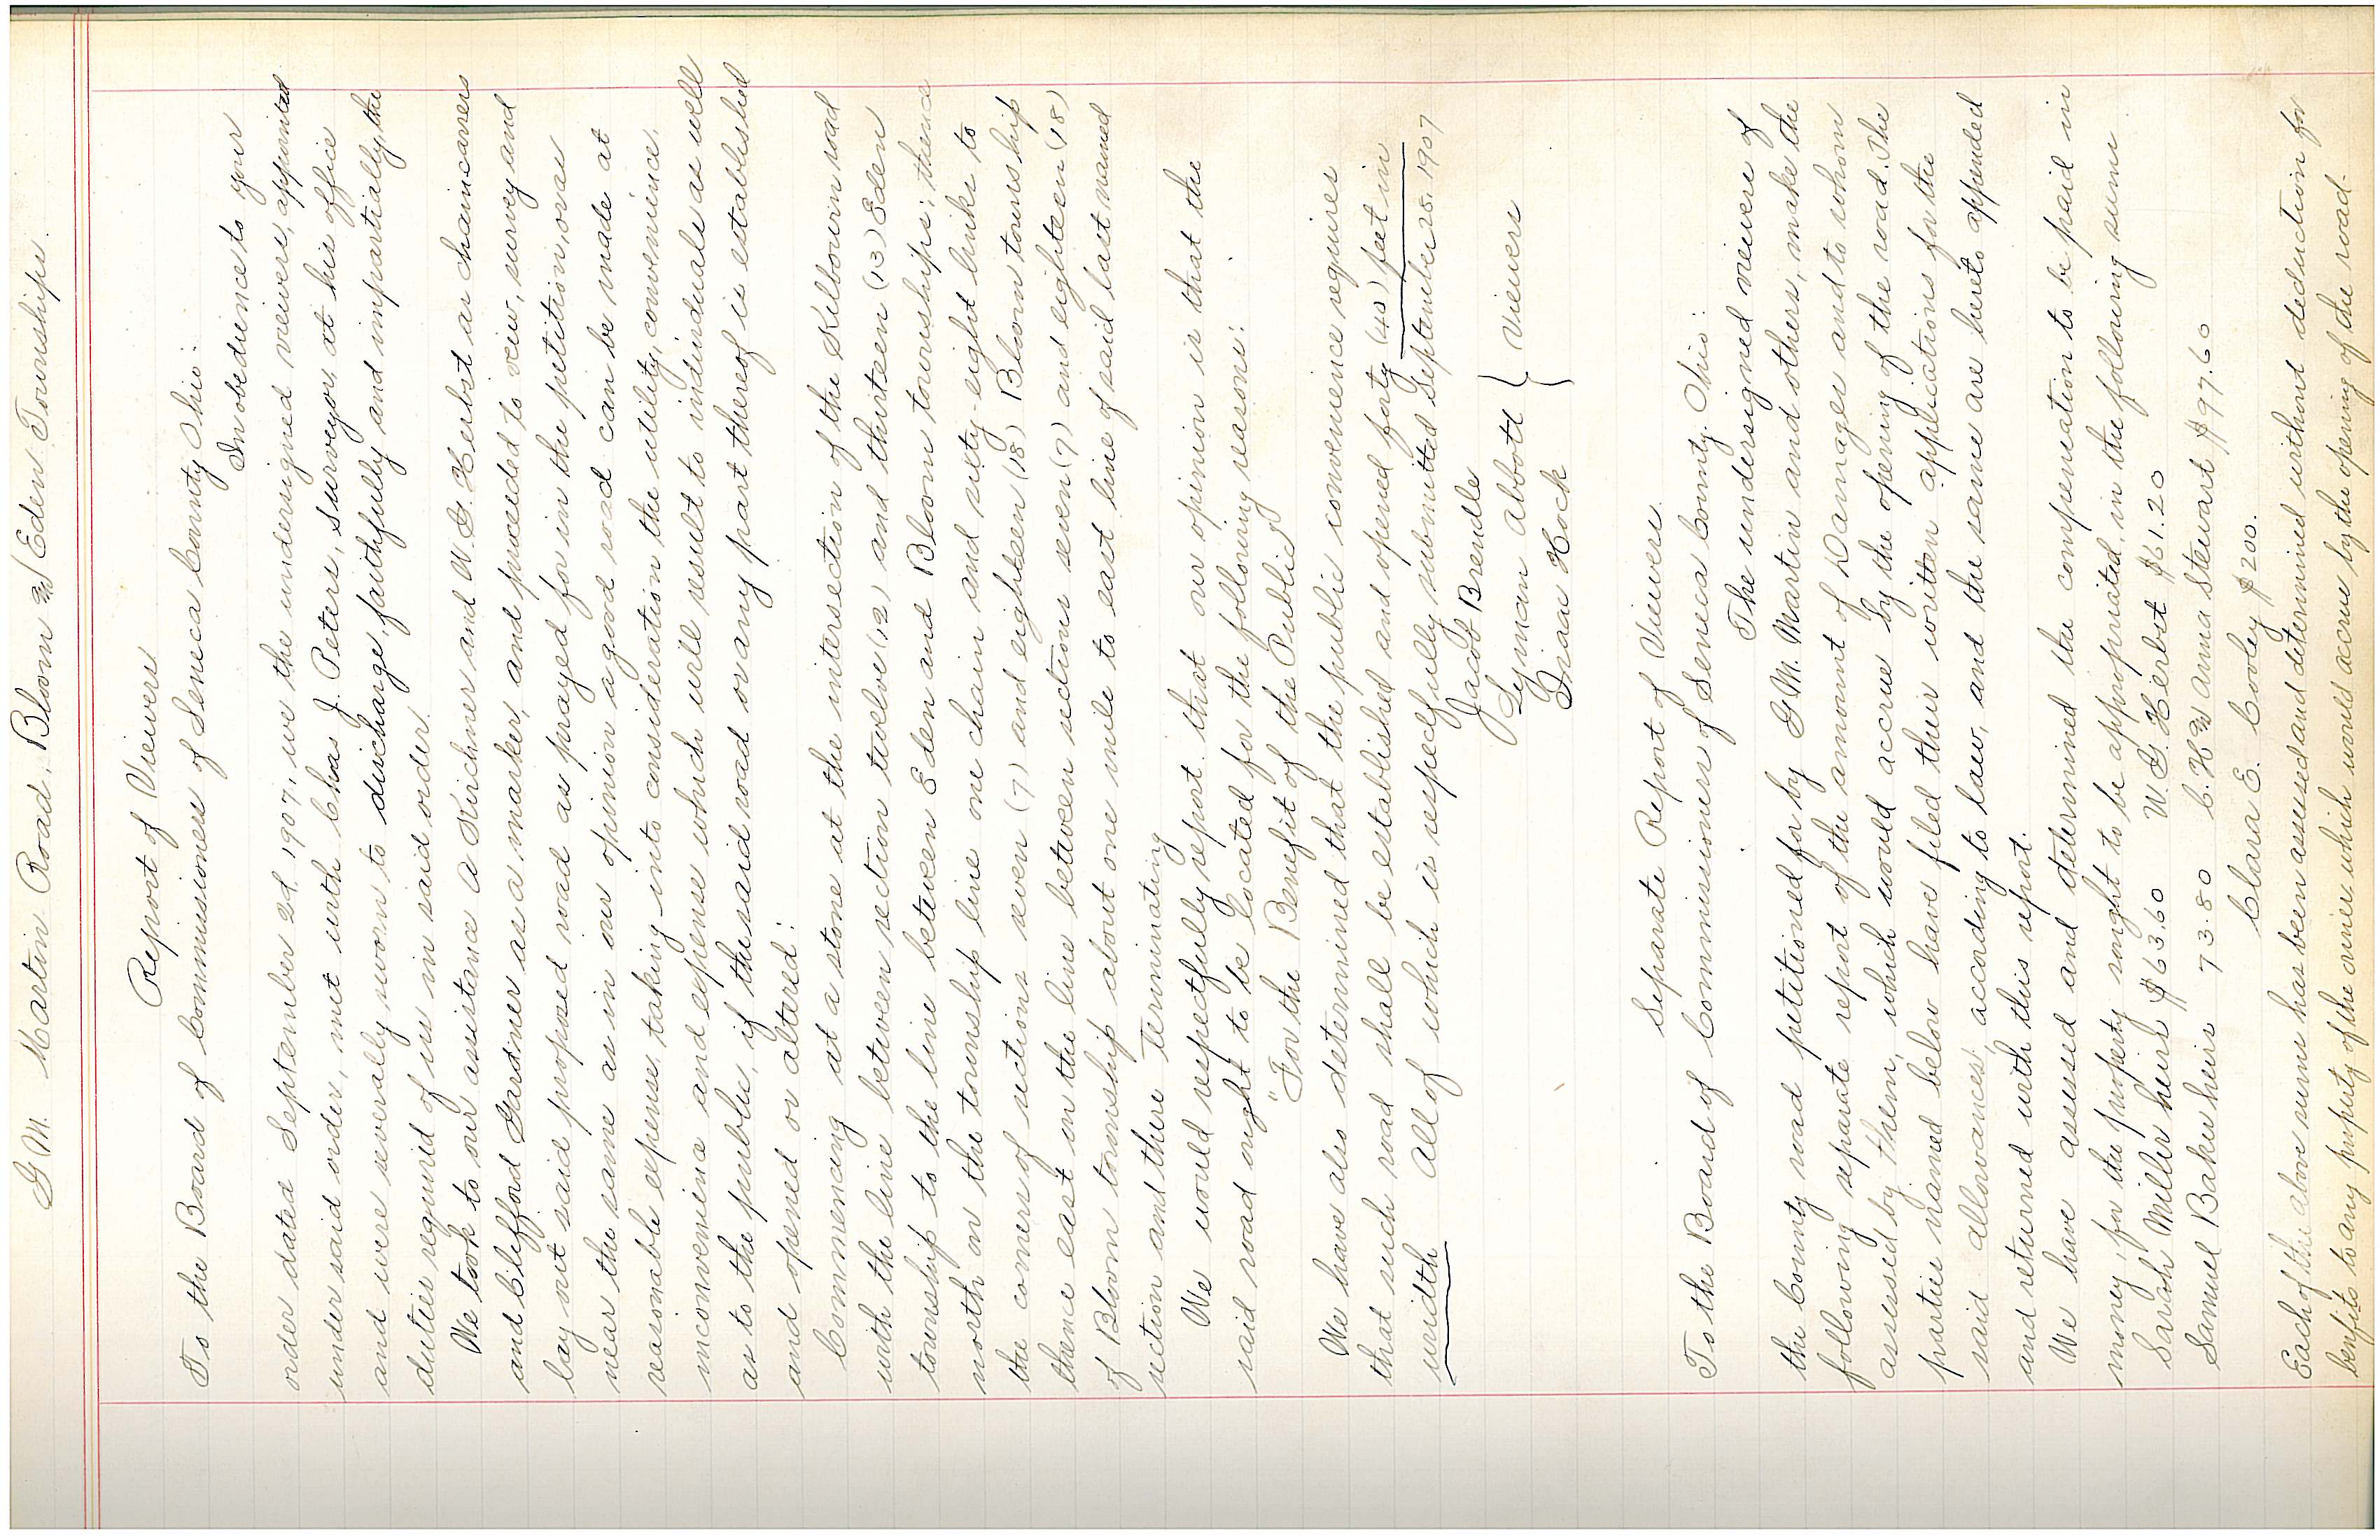 G M. Martin Road, Bloom and Eden Townships.
Report of Viewers
To the Board of Commissioners of Seneca County Ohio:
In obedience to your
order dated September 2d, 1907, we the undersigned viewers, appointed
under said order, met with Chas J. Peters, Surveyor, at his office
and were severally sworn to discharge, faithfully and impartially the
duties required of us in said order.
We took to our assistance A Kirchner and W. G. Herbst as chaincarriers
and Clifford Gardner as a marker, and proceeded to view, survey and
lay out said proposed road as prayed for in the petition, over
near the same as in our opinion a good road can be made at
reasonable expense, taking into consideration the utility, convenience,
inconvenience and expense which will result to individuals as well
as to the public, if the said road or any part thereof is established
and opened or altered:
Commencing at a stone at the intersection of the Kilbourn road
with the line between section twelve (12) and thirteen (13) Eden
township to the line between Eden and Bloom townships; thence
north on the township line one chain and sixty-eight links to
the corners of sections seven (7) and eighteen (18) Bloom township
thence east on the line between sections seven (7) and eighteen (18)
of Bloom township about one mile to east line of said last named
section and there Terminating
We would respectfully report that our opinion is that the
said road ought to be located for the following reasons:
"For the Benefit of the Public"
We have also determined that the public convenience requires
that such road shall be established and opened forty (40) feet in
width All of which is respectfully submitted September 28, 1907
Jacob Brendle
Lyman Abbott } Viewers
Isaac Hock
Separate Report of Viewers.
To the Board of Commissioners of Seneca County, Ohio:
The undersigned viewers of
the County road petitioned for by G M. Martin and others, make the
following separate report of the amount of Damages and to whom
assessed by them, which would accrue by the opening of the road. The
parties named below have filed their written applications for the
said allowances, according to law, and the same are hereto appended
and returned with this report.
We have assessed and determined the compensation to be paid in
money, for the property sought to be appropriated, in the following sums
Sarah Miller heirs $63.60 W. G. Herbst $61.20
Samuel Baker heirs 73.80 C. H and Anna Stewart $97.60
Clara E. Cooley $200.
Each of the above sums has been assessed and determined without deduction for
benefits to any property of the owner which would accrue by the opening of the road.